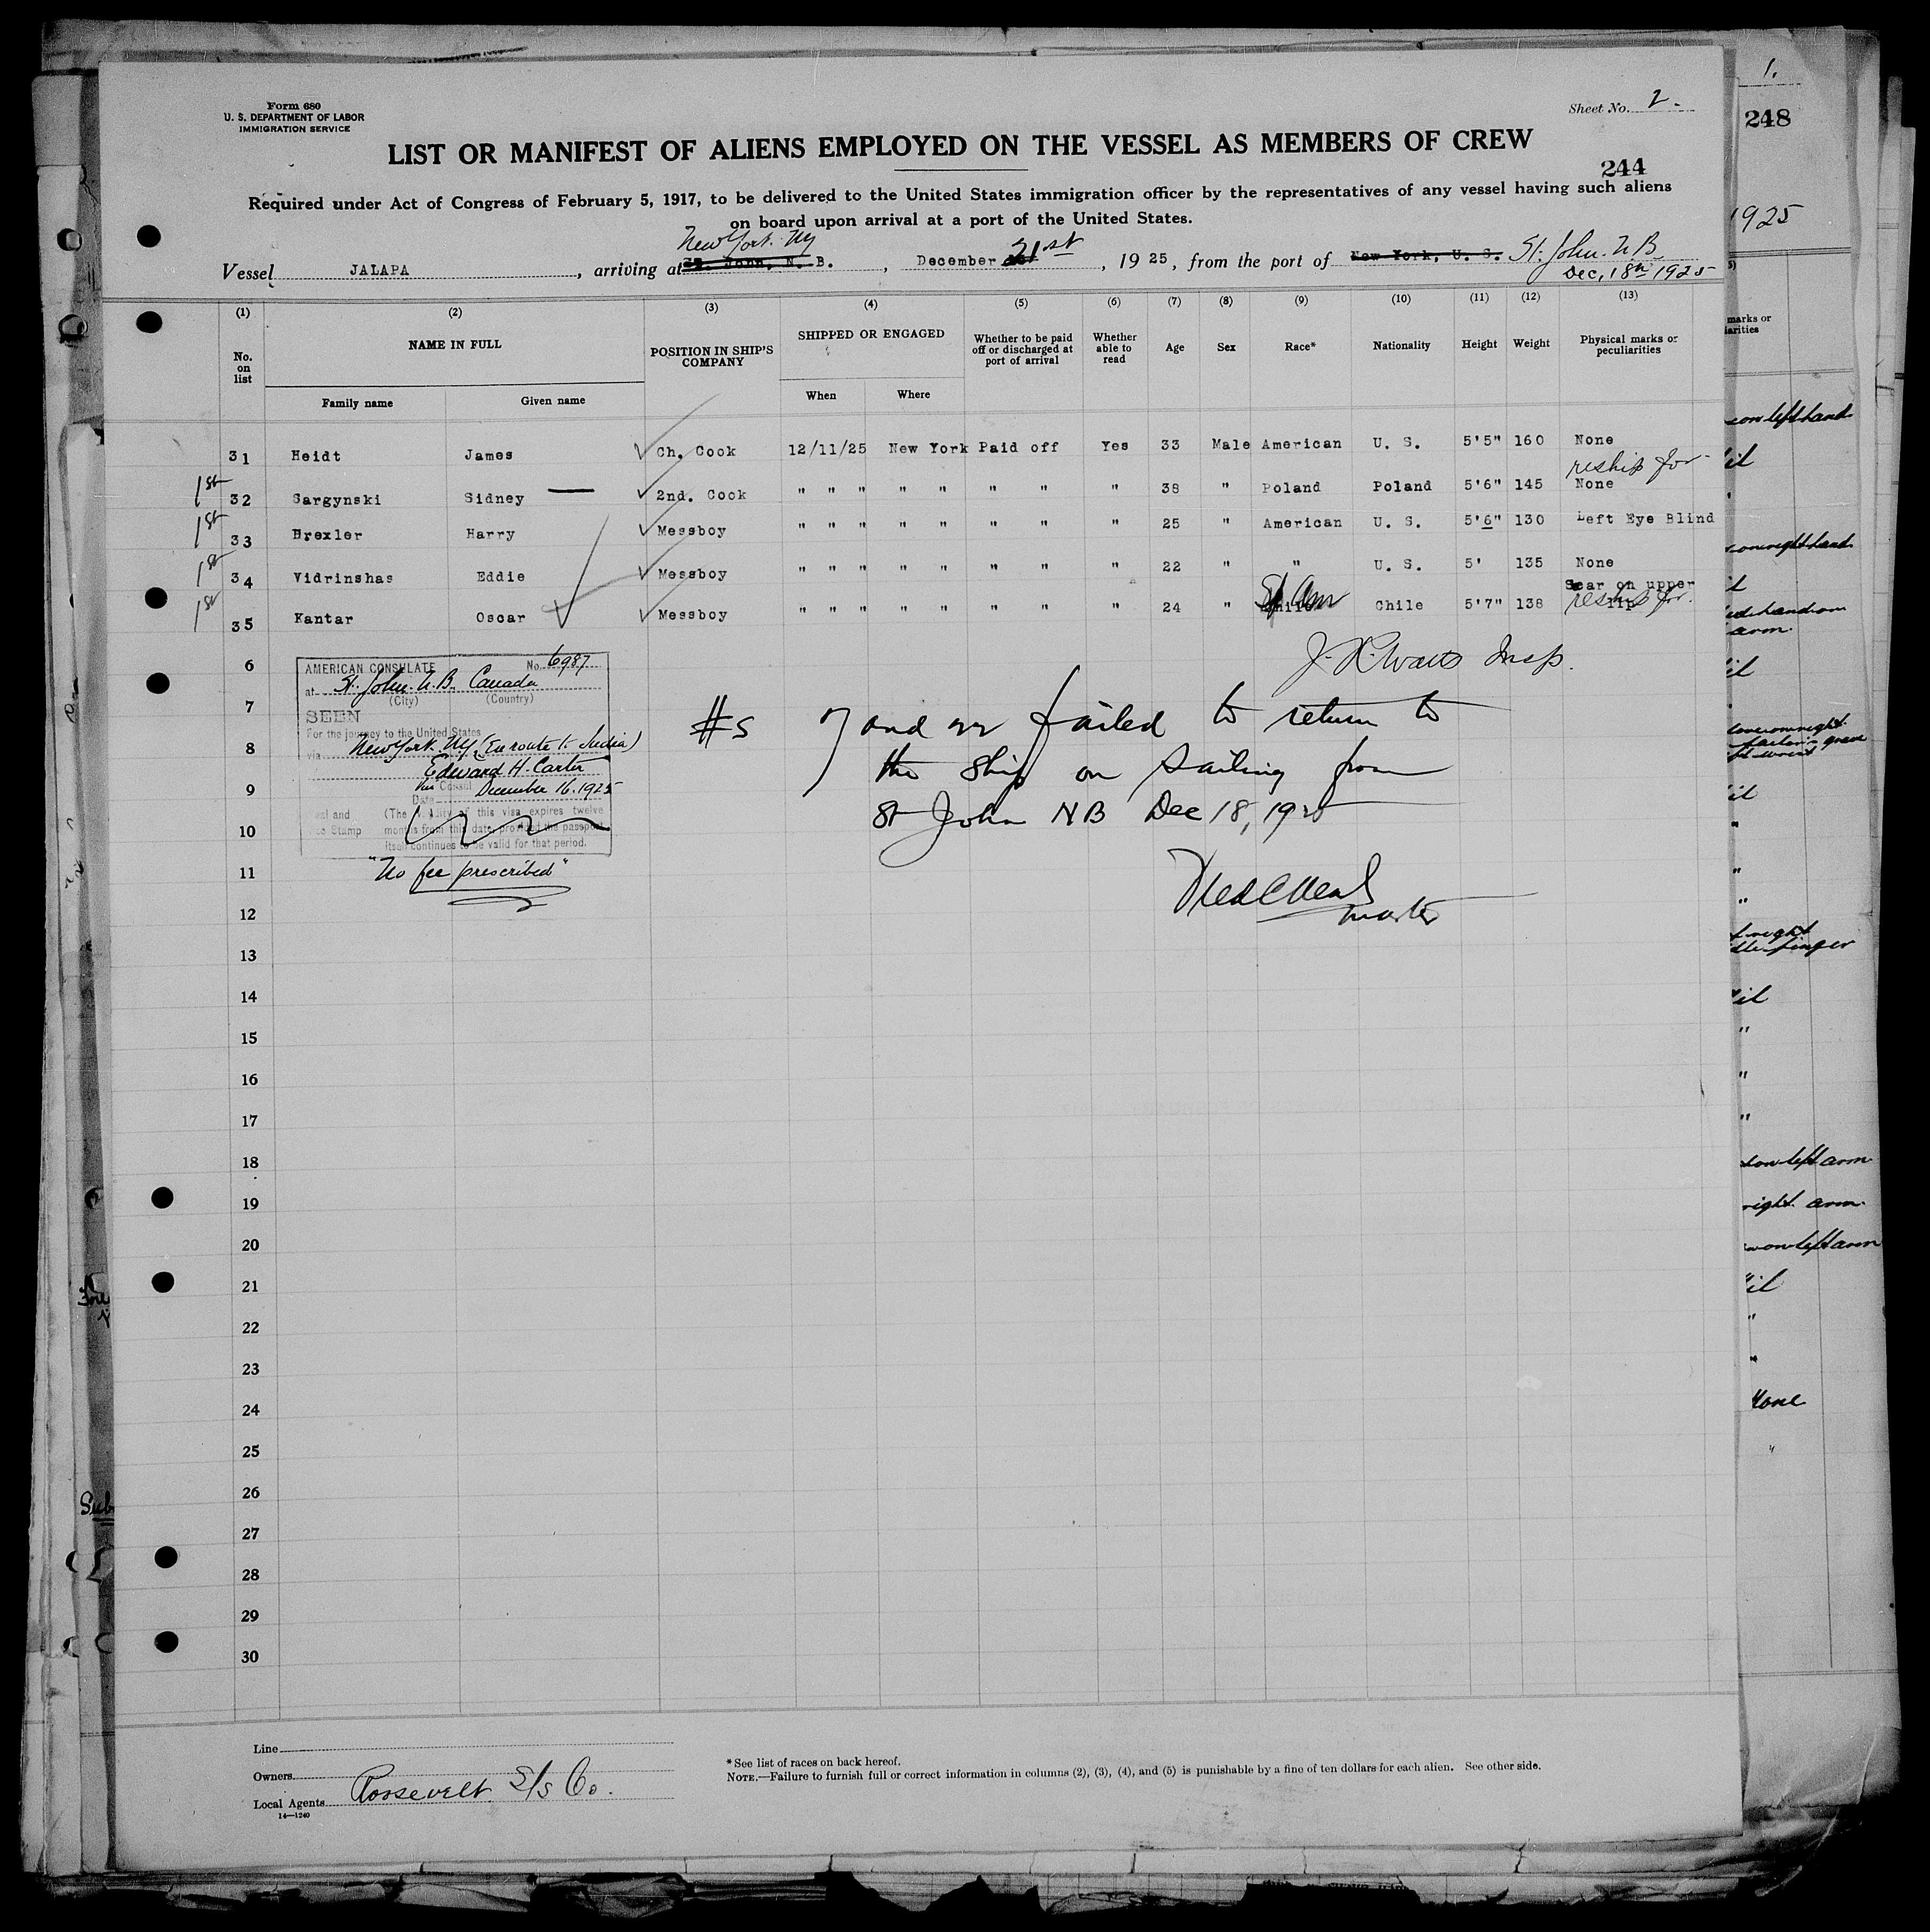 Form 680
U. S. DEPARTMENT OF LABOR
IMMIGRATION SERVICE
Sheet No. 2.
LIST OR MANIFEST OF ALIENS EMPLOYED ON THE VESSEL AS MEMBERS OF CREW
244
Required under Act of Congress of February 5, 1917, to be delivered to the United States immigration officer by the representatives of any vessel having such aliens
on board upon arrival at a port of the United States.
New York. NY
Vessel JALAPA, arriving at St. John, N. B., December 21st, 1925, from the port of New York, U. S. St. John. N.B.
Dec, 18th 1925
(1) (2) (3) (4) (5) (6) (7) (8) (9) (10) (11) (12) (13)
No. on list NAME IN FULL POSITION IN SHIP'S COMPANY SHIPPED OR ENGAGED Whether to be paid off or discharged at port of arrival Whether able to read Age Sex Race* Nationality Height Weight Physical marks or peculiarities
Family name Given name When Where
31 Heidt James Ch. Cook 12/11/25 New York Paid off Yes 33 Male American U. S. 5'5" 160 None
reship for
1st 32 Sargynski Sidney — 2nd. Cook " " " " " " " " 38 " Poland Poland 5'6" 145 None
1st 33 Brexler Harry Messboy " " " " " " " " 25 " American U. S. 5'6" 130 Left Eye Blind
1st 34 Vidrinshas Eddie Messboy " " " " " " " " 22 " " U. S. 5' 135 None
1st 35 Kantar Oscar Messboy " " " " " " " " 24 " Sp Am Chile 5'7" 138 Scar on upper lip
reship for.
6
AMERICAN CONSULATE No. 6987
at St. John. N.B. Canada
(City) (Country)
SEEN
For the journey to the United States
via New York. NY. (En route to India)
Edward H. Carter
Vice Consul
Date December 16. 1925
(The validity of this visa expires twelve
months from this date, provided the passport
itself continues to be valid for that period.
"No fee prescribed"
J. R. Watts Insp.
#s 7 and 22 failed to return to
the ship on sailing from
St John NB Dec 18, 1925
master
7
8
9
10
11
12
13
14
15
16
17
18
19
20
21
22
23
24
25
26
27
28
29
30
Line
Owners
Local Agents Roosevelt S/s Co.
14—1240
*See list of races on back hereof.
NOTE.—Failure to furnish full or correct information in columns (2), (3), (4), and (5) is punishable by a fine of ten dollars for each alien. See other side.
1.
248
1925
marks or
on left hand
on right hand
arm.
finger
on left arm
right arm.
on left arm
None